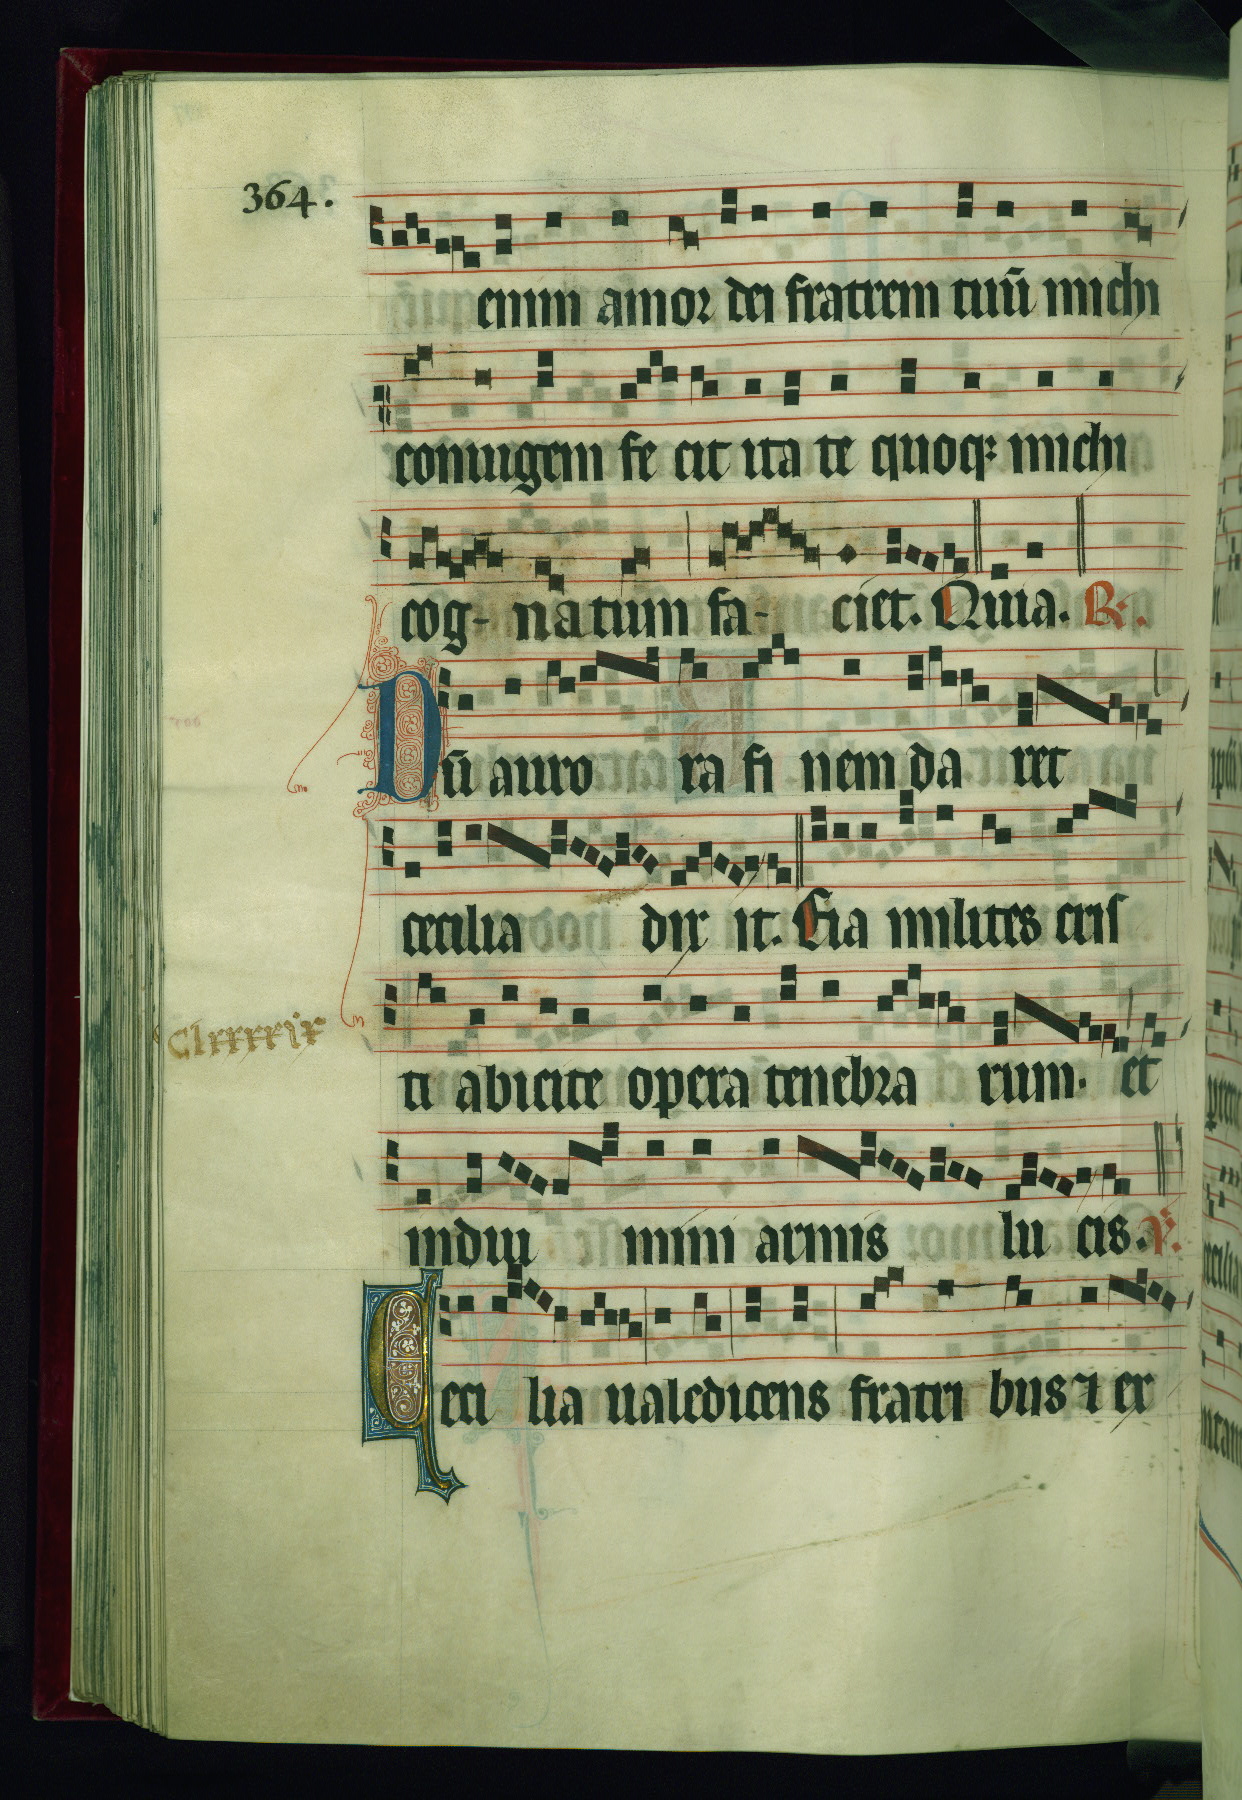 364.
enim amor dei fratrem tuū michi
coniugem fe cit ita te quoq; michi
cog- natum fa- ciet. Quia. R.
Dū auro ra fi nem da ret
cecilia dix it. Eia milites cris
ti abicite opera tenebra rum. et
Clxxxxix
indui mini armis lu cis. V.
Ceci lia ualedicens fratri bus ⁊ ex